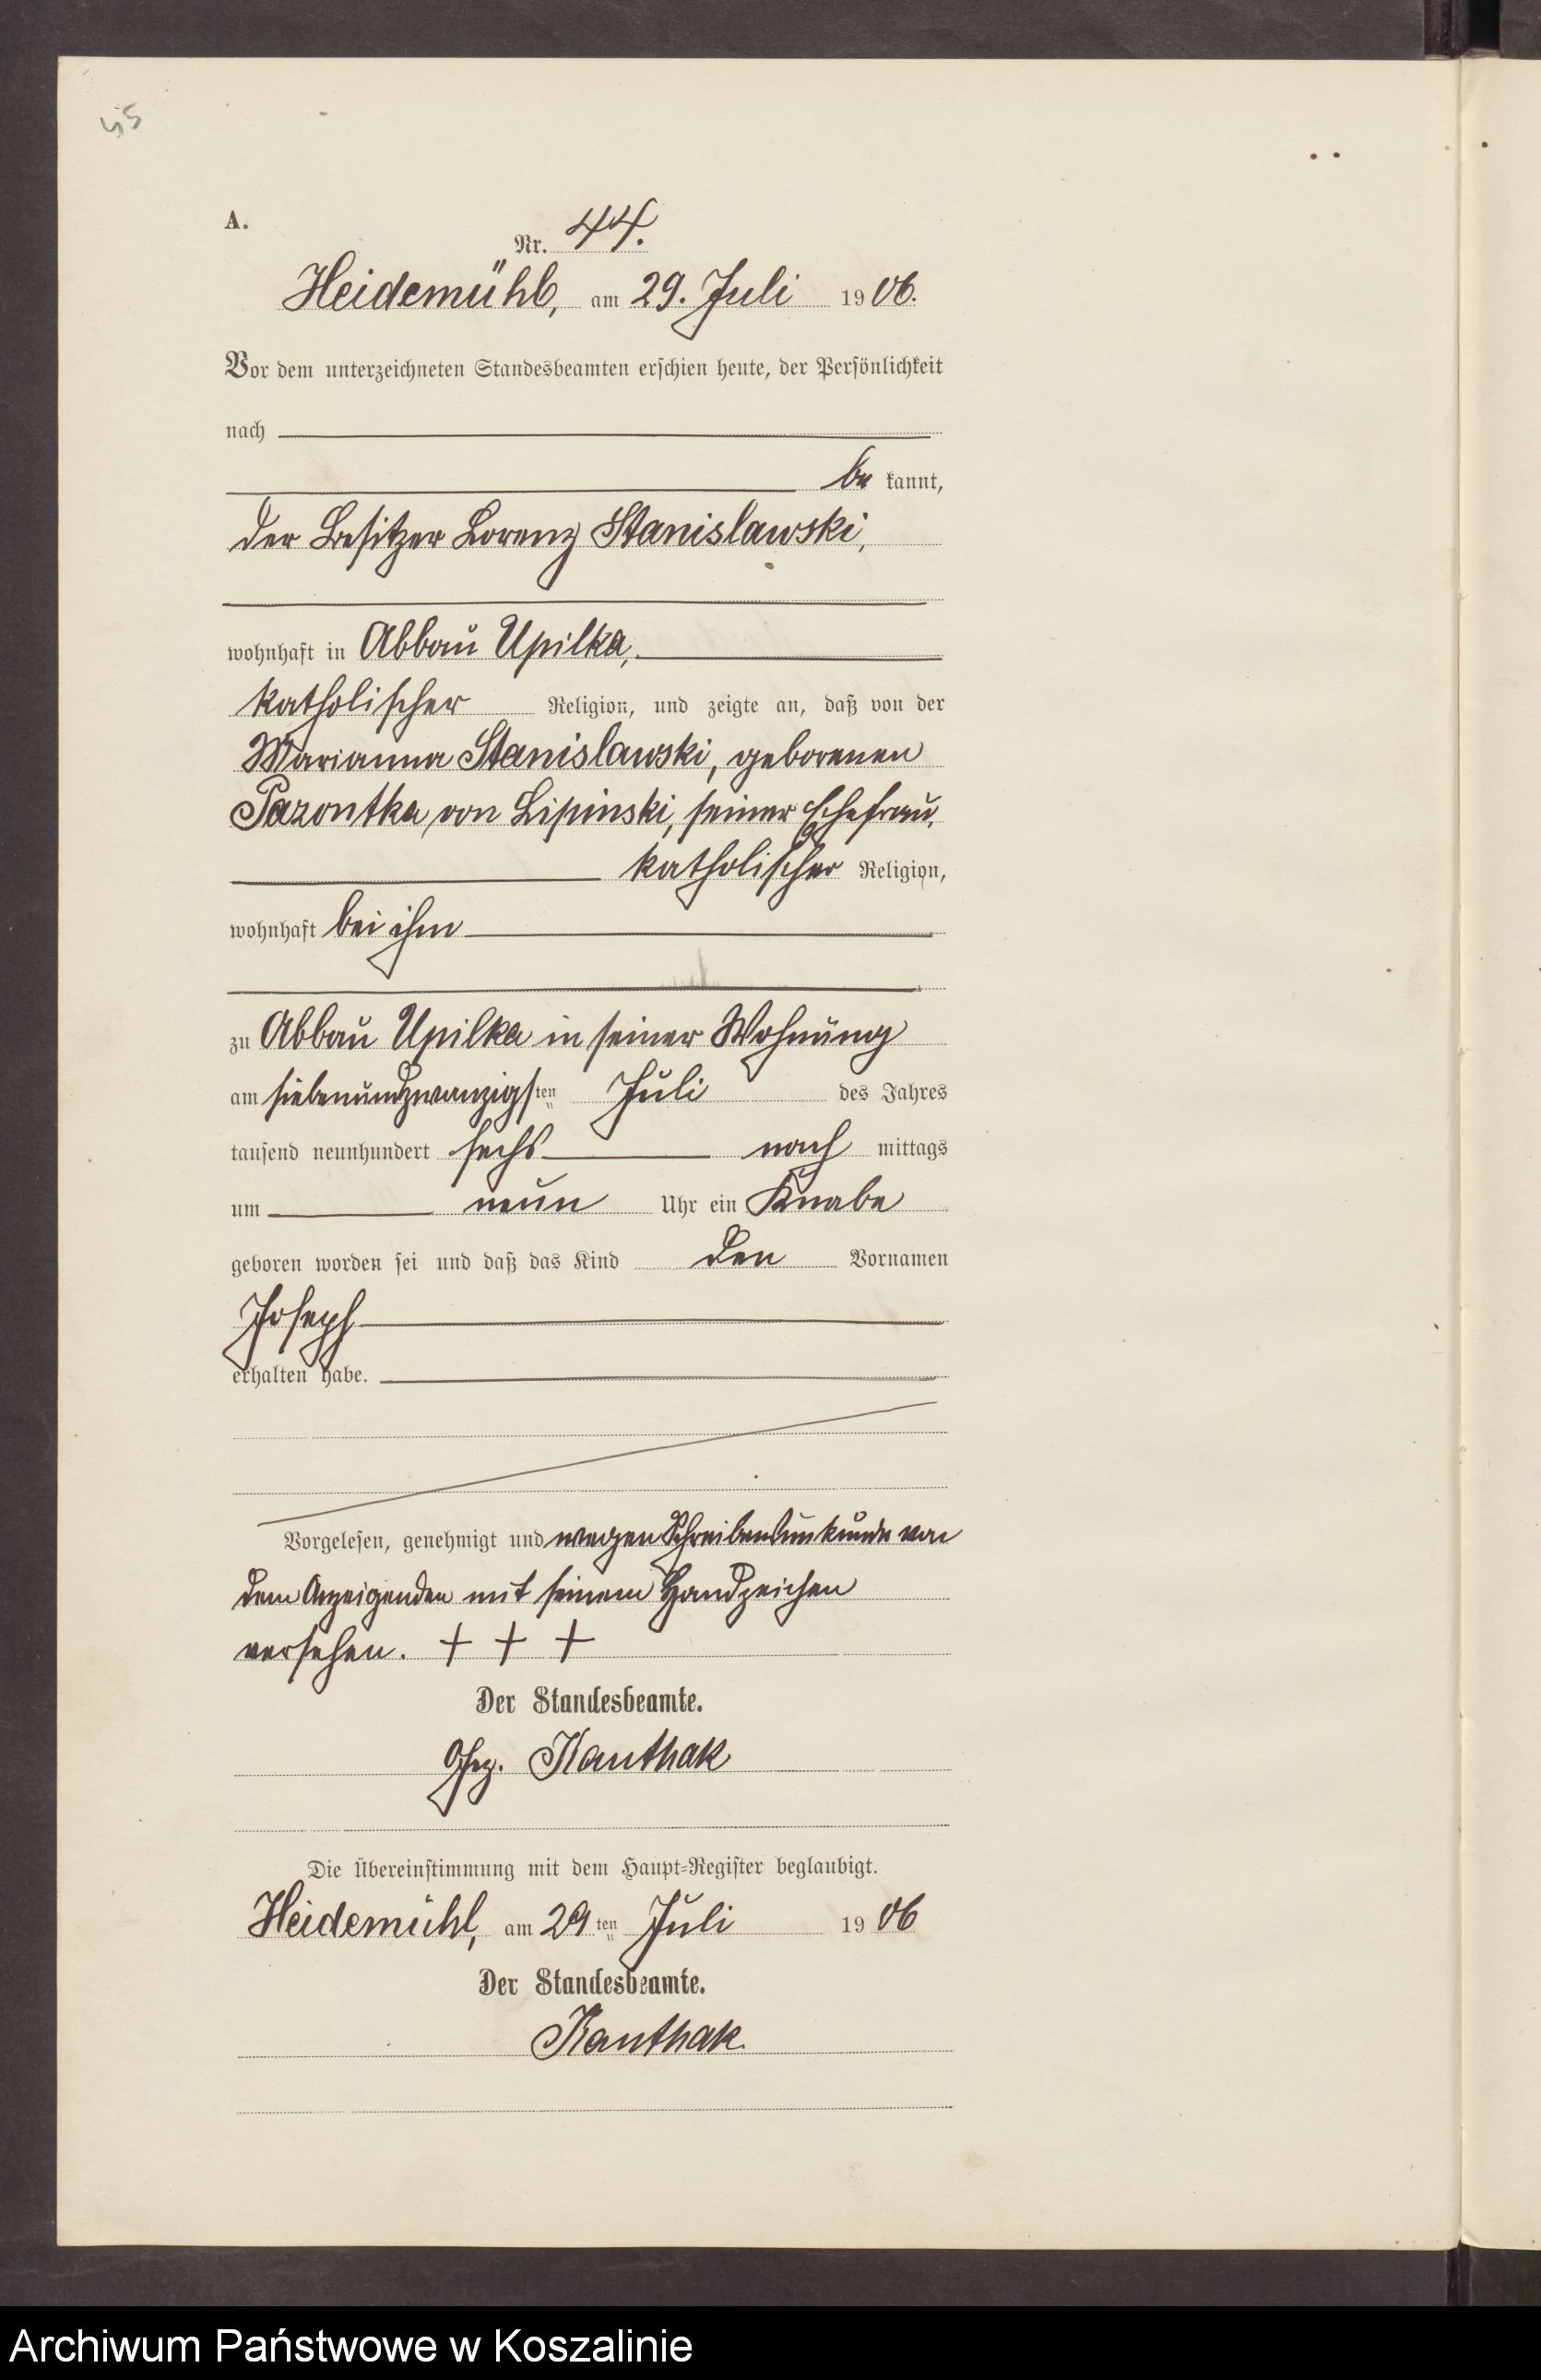 45
A.
Nr. 44.
Heidemühl, am 29. Juli 1906.
Vor dem unterzeichneten Standesbeamten erschien heute, der Persönlichkeit
nach
be kannt,
der Besitzer Lorenz Stanislawski,
wohnhaft in Abbau Upilka,
katholischer Religion, und zeigte an, daß von der
Marianna Stanislawski, geborenen
Pazontka von Lipinski, seiner Ehefrau,
katholischer Religion,
wohnhaft bei ihm
zu Abbau Upilka in seiner Wohnung
am siebenundzwanzigsten Juli des Jahres
tausend neunhundert sechs nach mittags
um neun Uhr ein Knabe
geboren worden sei und daß das Kind den Vornamen
Joseph
erhalten habe.
Vorgelesen, genehmigt und wegen Schreibensunkunde von
dem Anzeigenden mit seinem Handzeichen
versehen. + + +
Der Standesbeamte.
Gez. Kanthak
Die Übereinstimmung mit dem Haupt-Register beglaubigt.
Heidemühl, am 29ten Juli 1906
Der Standesbeamte.
Kanthak.
Archiwum Państwowe w Koszalinie